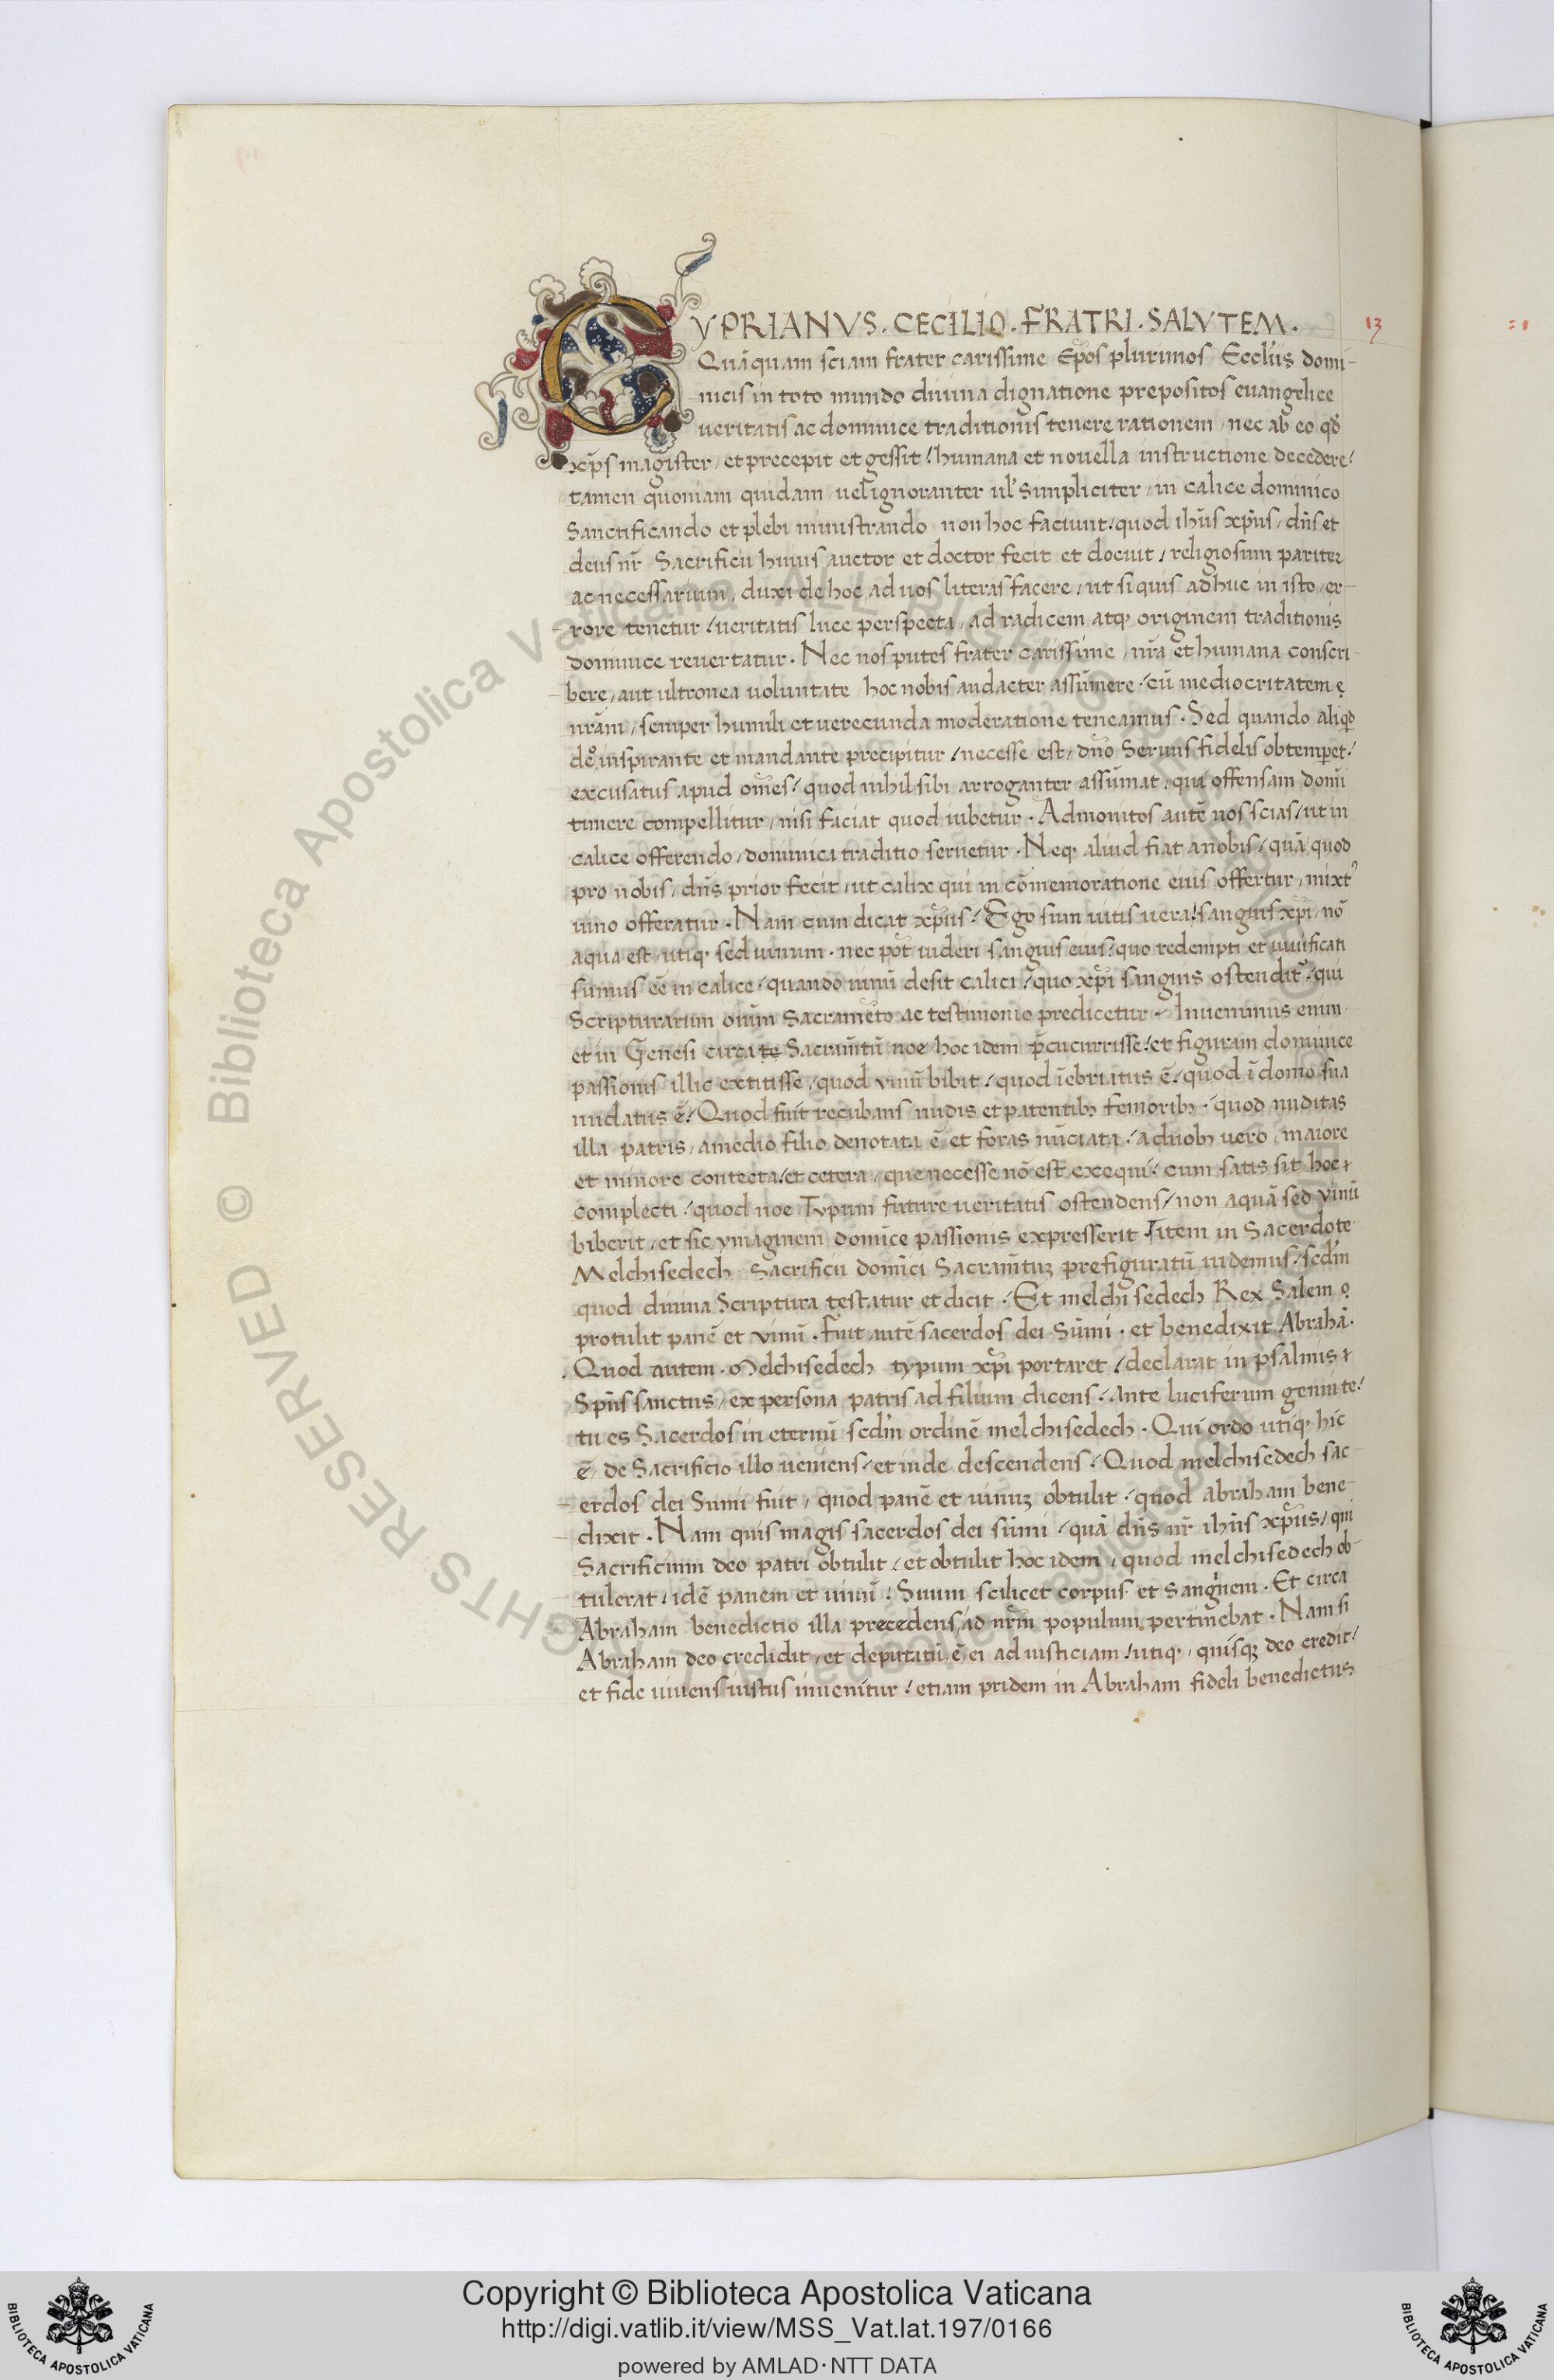 CYPRIANVS. CECILIO. FRATRI. SALVTEM.
13
Quāquam sciam frater carissime Ep̄os plurimos Eccl'iis domi-
nicis in toto mundo diuina dignatione prepositos euangelice
ueritatis ac dominice traditionis tenere rationem, nec ab eo qđ
xp̄s magister, et precepit et gessit / humana et nouella institutione decedere /
tamen quoniam quidam, uel ignoranter ul' simpliciter, in calice dominico
Sanctificando et plebi ministrando non hoc faciunt / quod ih̄us xp̄us, dn̄s et
deus nr̄ Sacrificii huius auctor et doctor fecit et docuit / religiosum pariter
ac necessarium, duxi de hoc, ad uos literas facere, ut si quis adhuc in isto, er-
rore tenetur / ueritatis luce perspecta, ad radicem atq; originem traditionis
dominice reuertatur. Nec nos putes frater carissime, nr̄a et humana conscri-
bere, aut ultronea uoluntate hoc nobis audacter assūmere / cū mediocritatem
nrām, semper humili et uerecunda moderatione teneamus. Sed quando aliqđ
deo inspirante et mandante precipitur / necesse est, dn̄o Seruus fidelis obtemp̄et /
excusatus apud om̄es / quod nihil sibi arroganter assūmat, qui offensam domī
timere compellitur, nisi faciat quod iubetur. Admonitos autē nos scias / ut in
calice offerendo, dominica traditio seruetur. Neq; aliud fiat a nobis / quā quod
pro nobis, dn̄s prior fecit, ut calix qui in cōmemoratione eius offertur, mixt'
uino offeratur. Nam cum dicat xp̄us / Ego sum uitis uera / sanguis xp̄i, nō
aqua est, utiq; sed uinum. nec pōt uideri sanguis eius / quo redempti et uiuificati
sumus eē in calice / quando uinū desit calici / quo xp̄i sanguis ostendit' / qui
Scripturarum oiūm Sacramēto ac testimonio predicetur. Inuenimus enim
et in Genesi circa te Sacram̄tū noe hoc idem p̄cucurrisse / et figuram dominice
passionis illic extitisse, quod vinū bibit / quod īebriatus ē / quod ī domo sua
nudatus ē / Quod fuit recubans nudis et patentib; femorib; / quod nuditas
illa patris, a medio filio denotata ē et foras nūciata / a duob; uero, maiore
et minore contecta / et cetera, que necesse nō est exequi / cum satis sit hoc
complecti / quod noe Typum future ueritatis ostendens / non aquā sed vinū
biberit, et sic ymaginem domīce passionis expresserit Item in Sacerdote
Melchisedech Sacrificii domīci Sacram̄tuꝫ prefiguratū uidemus / scd'm
quod diuina Scriptura testatur et dicit. Et melchisedech Rex Salem
protulit panē et vinū. Fuit autē sacerdos dei Sūmi. et benedixit Abrahā.
Quod autem. Melchisedech typum xp̄i portaret / declarat in psalmis
Sp̄us sanctus, ex persona patris ad filium dicens / Ante luciferum genui te /
tu es Sacerdos in eternū scd'm ordinē melchisedech. Qui ordo utiq; hic
ē, de Sacrificio illo ueniens, et inde descendens / Quod melchisedech sac-
erdos dei Sumi fuit, quod panē et uinuꝫ obtulit / quod abraham bene-
dixit. Nam quis magis sacerdos dei sūmi / quā dn̄s nr̄ ih̄us xp̄us / qui
Sacrificium deo patri obtulit, et obtulit hoc idem, quod melchisedech ob-
tulerat, idē panem et uinū / Suum scilicet corpus et sanguinem. Et circa
Abraham benedictio illa precedens, ad nrm̄ populum pertinebat. Nam si
Abraham deo credidit, et deputatū ē ei ad iusticiam / utiq;, quisqꝫ deo credit /
et fide uiuens iustus inuenitur / etiam pridem in Abraham fideli benedictus
© Biblioteca Apostolica Vaticana ALL RIGHTS RESERVED
Copyright © Biblioteca Apostolica Vaticana
http://digi.vatlib.it/view/MSS_Vat.lat.197/0166
powered by AMLAD·NTT DATA
BIBLIOTECA APOSTOLICA VATICANA
BIBLIOTECA APOSTOLICA VATICANA